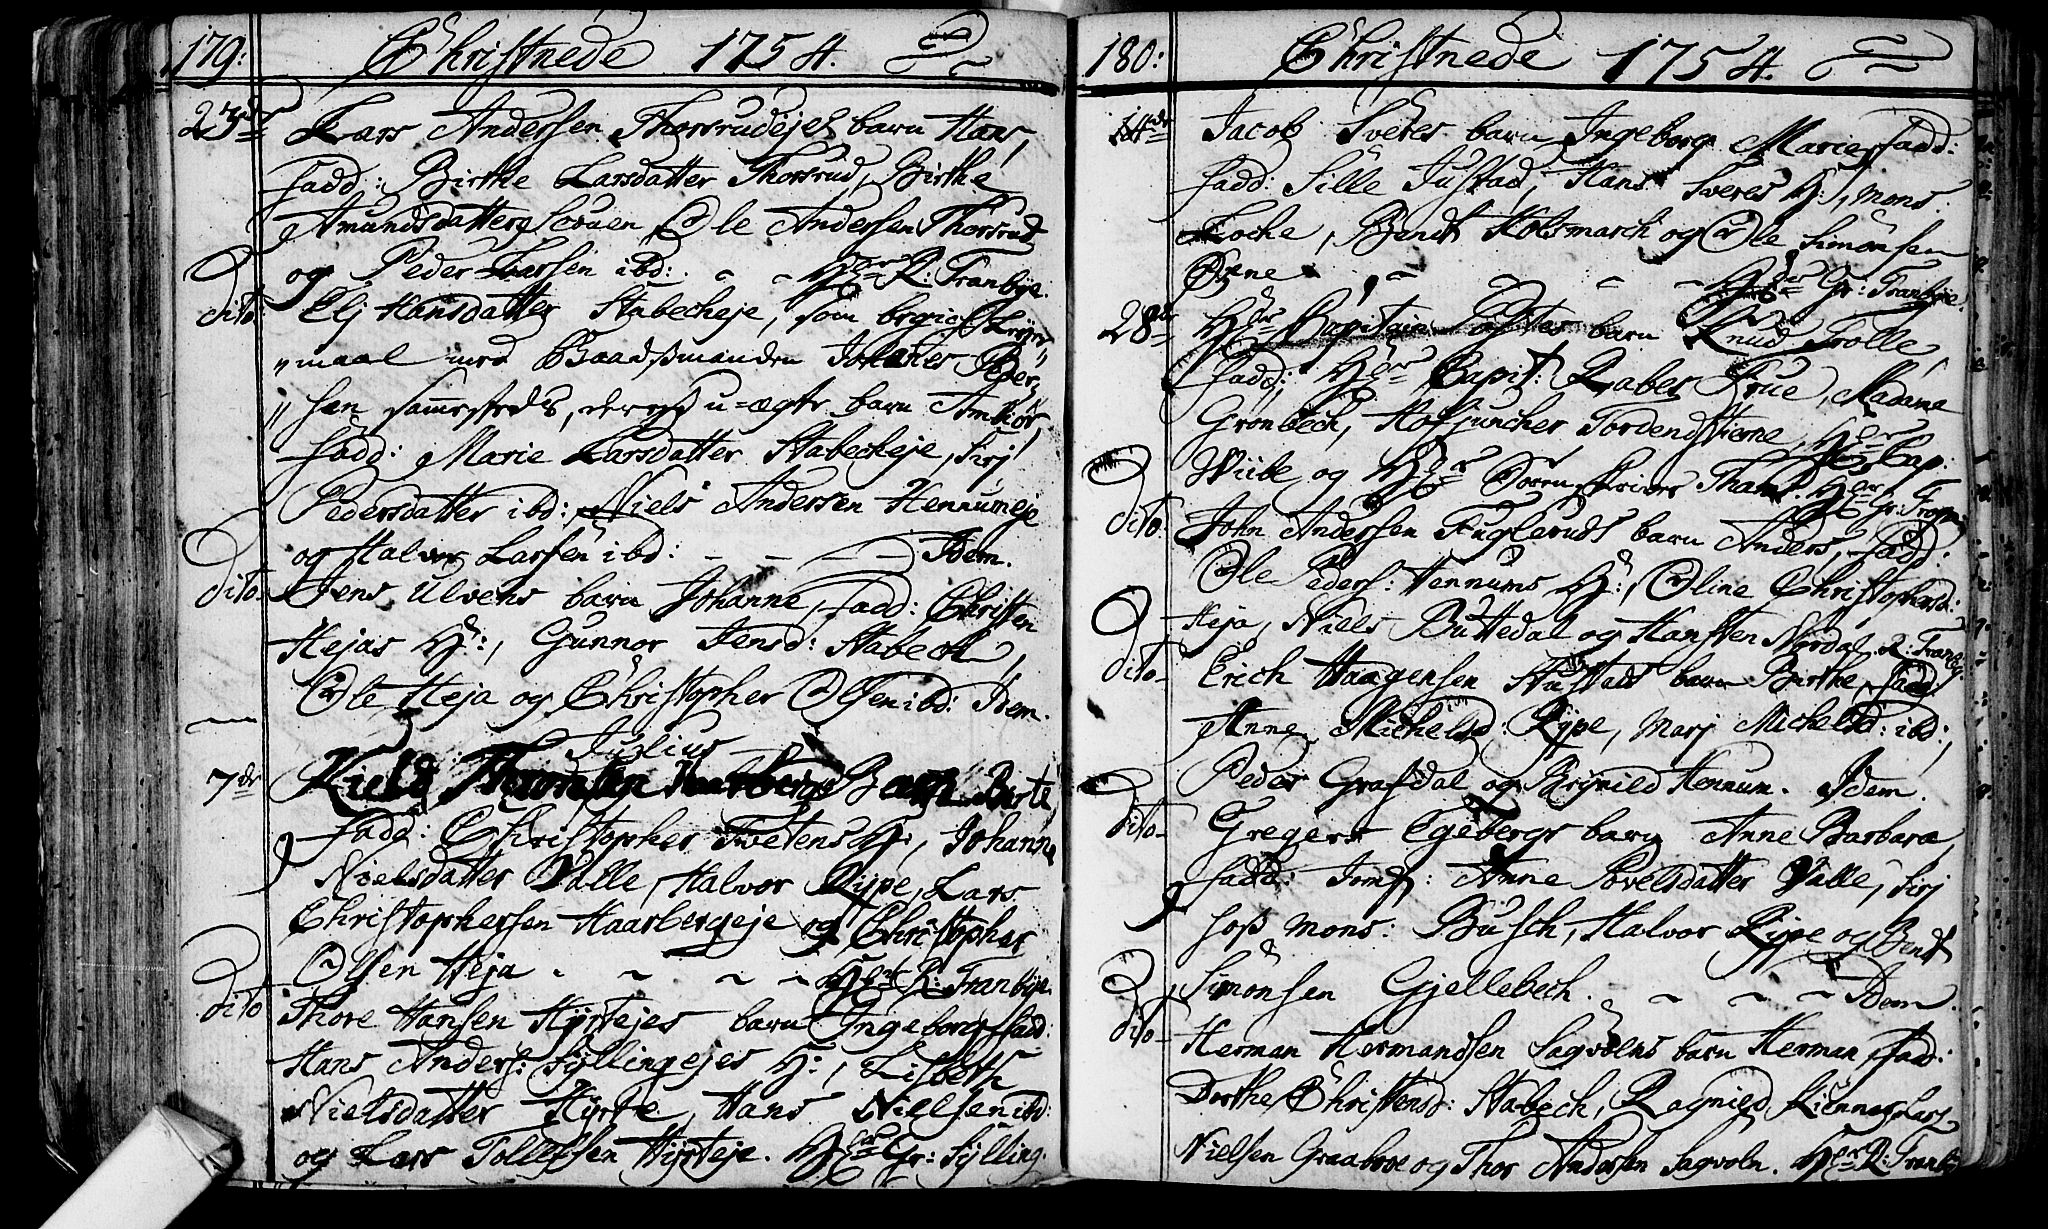 179: Christnede 1754.
23de Lars Andersen Thorsrudejes barn Hans,
fadd: Birthe Larsdatter Thorsrud, Birthe
Amundsdatter Scouen, Ole Andersen Thorsrud
og Peder Larsen ibd: Hr R: Tranbye.
dito. Elj Hansdatter Stabecheje, som begich Leyer
maal med Baadsmanden Johanes Peder
sen sammesteds, deres u=ægte barn Ambiør,
fadd: Marie Larsdatter Stabecheje, Sirj
Pedersdatter ibd: Niels Andersen Hennumeje
og Halvor Larsen ibd: Idem.
dito. Jens Ulvens barn Johanne, fadd: Christen
Hejas H:, Gunnor Jensd: Stabech,
Ole Heja og Christopher Olsen ibd: Idem.
Julius
7de Kield Haarberg Barn Berte
fadd: Christopher Tvetens H:, Johanne
Nielsdatter Valle, Halvor Rype, Lars
Christophersen Haarbergeje og Christopher
Olsen Heja Hr R: Tranbye.
dito Thore Hansen Hyrtejes barn Ingeborg, fadd:
Hans Anders: Syllingejes H:, Lisbeth
Nielsdatter Hyrte, Hans Nielsen ibd:
og Lars Tollefsen Hyrteje. Hr Gr: Sylling.
180: Christnede 1754.
14de Jacob Sveres barn Ingeborg Marie, fadd:
fadd: Sille Justad, Hans Sveres H:, Mons.
Koche, Bendt Holtsmarch og Ole Simonsen
Øgne Hr Gr: Tranbye.
28de Hr Capitain barn Knud Trolle,
fadd: Hr Capit: Rabes Frue, Madame
Grønbech, Hofjuncher Tordenstierne, Hr Cap:
Wiibe og Hr Soren-skriver Tham. Hr Gr: Trogn:
dito. John Andersen Fuglerudts barn Anders, fadd:
Ole Peders: Hennums H:, Oline Christophersd:
Heja, Niels Buttedal og Hansten Nordal. R: Tranby.
dito. Erich Haagensen Stustads barn Birthe, fadd:
Anne Michelsd: Rype, Marj Michelsd: ibd:,
Peder Grafsdal og Brynild Hennum. Idem.
dito. Gregers Egebergs barn Anne Barbara,
fadd: Jomf: Anne Povelsdatter Valle, Sirj
hoss Mons: Busch, Halvor Rype og Bendt
Simonsen Gjellebech. Idem.
dito. Herman Hermandsen Sagvolns barn Herman, fadd:
Dorthe Christensd: Stabech, Ragnild Kiennes, Lars
Nielsen Graabroe og Thor Andersen Sagvoln. Hr R: Tranby